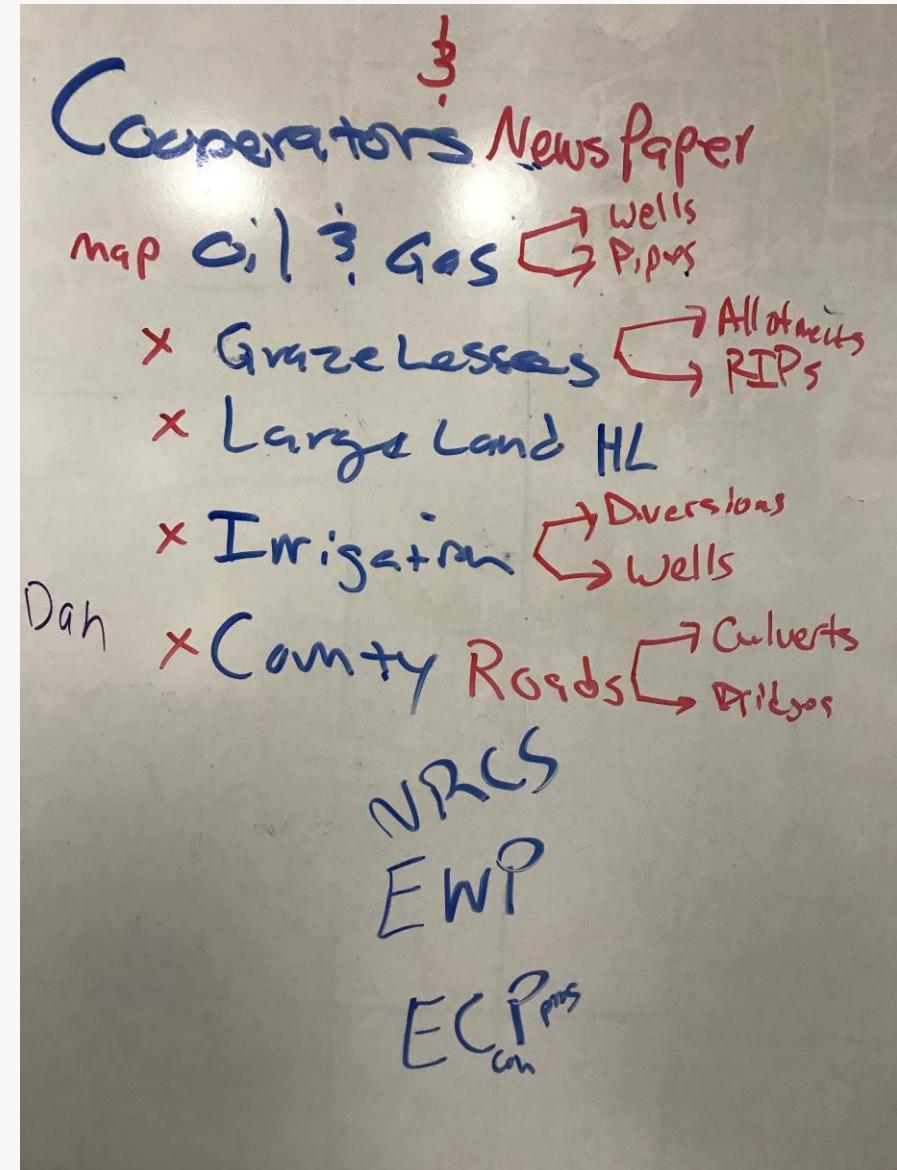 &
Cooperators NewsPaper
map Oil & Gas
Wells
Pipes
X Graze Lesses
Allotments
RIPs
X Large Land HL
X Irrigation
Diversions
Wells
Dan
X County Roads
Culverts
Bridges
NRCS
EWP
ECP
con